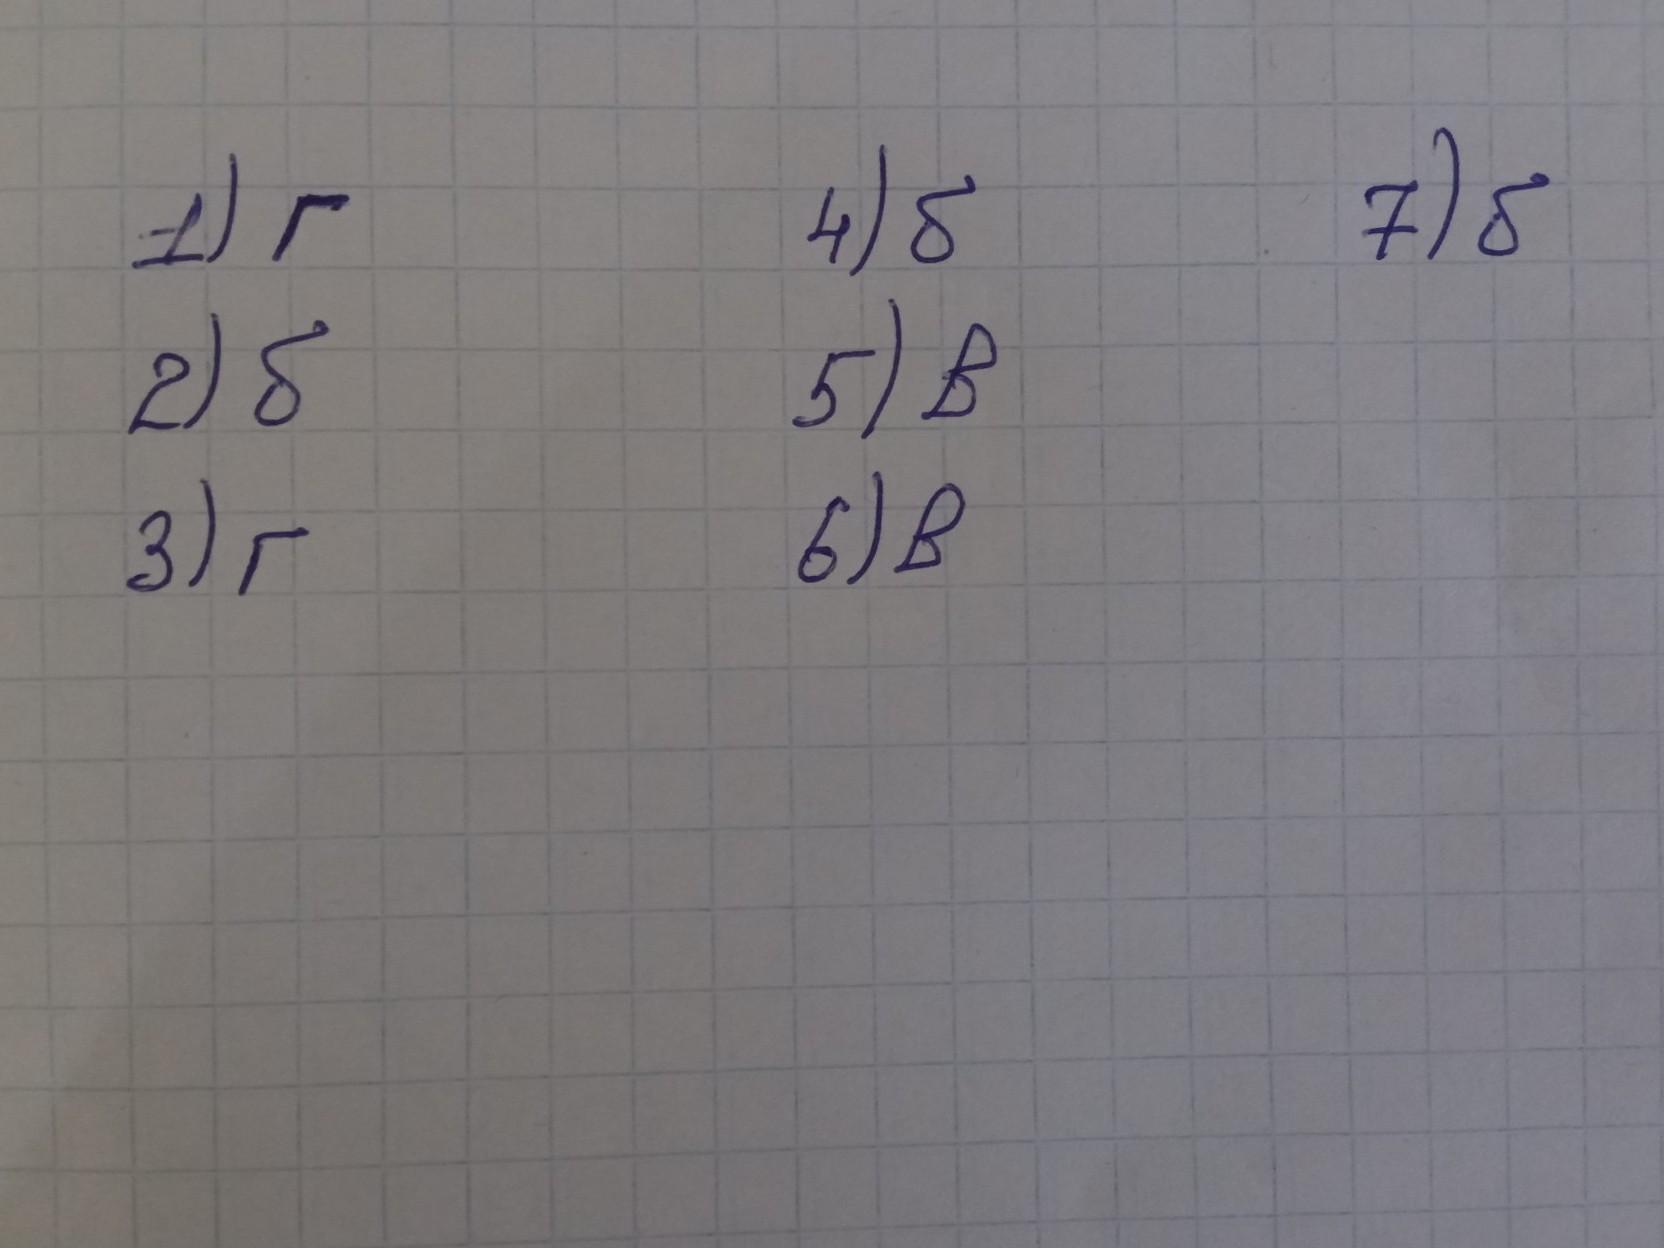 1) г
2) б
3) г
4) б
5) в
6) в
7) б